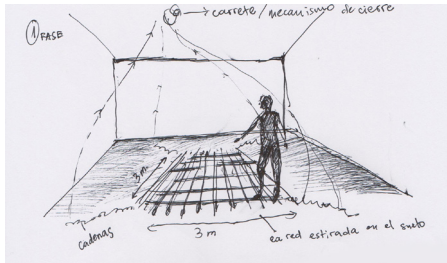 → carrete / mecanismo de cierre
1 FASE
3 m
cadenas
3 m
la red estirada en el suelo